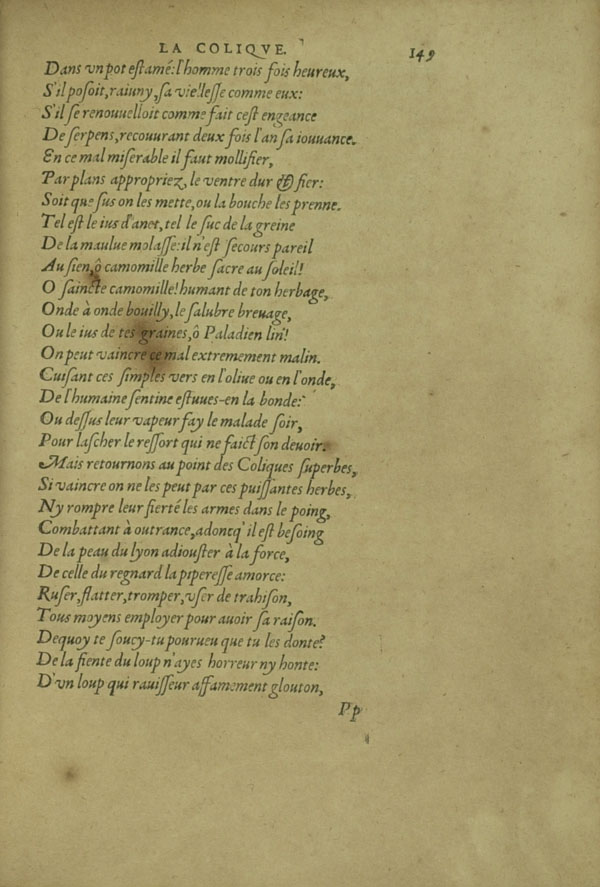 LA COLIQVE. 149
Dans vn pot estamé: l'homme trois fois heureux,
S'il posoit, raiuny, sa vieillesse comme eux:
S'il se renouuelloit comme fait cest engeance
De serpens, recouurant deux fois l'an sa iouuance.
En ce mal miserable il faut mollifier,
Par plans appropriez, le ventre dur & fier:
Soit que sus on les mette, ou la bouche les prenne.
Tel est le ius d'anet, tel le suc de la greine
De la maulue molasse: il n'est secours pareil
Au sien, ô camomille herbe sacre au soleil!
O saincte camomille! humant de ton herbage,
Onde à onde bouilly, le salubre breuage,
Ou le ius de tes graines, ô Paladien lin!
On peut vaincre ce mal extremement malin.
Cuisant ces simples vers en l'oliue ou en l'onde,
De l'humaine sentine estuues-en la bonde:
Ou dessus leur vapeur fay le malade soir,
Pour lascher le ressort qui ne faict son deuoir.
Mais retournons au point des Coliques superbes,
Si vaincre on ne les peut par ces puissantes herbes,
Ny rompre leur fierté les armes dans le poing,
Combattant à outrance, adoncq' il est besoing
De la peau du lyon adiouster à la force,
De celle du regnard la piperesse amorce:
Ruser, flatter, tromper, vser de trahison,
Tous moyens employer pour auoir sa raison.
Dequoy te soucy-tu pourueu que tu les donte?
De la fiente du loup n'ayes horreur ny honte:
D'vn loup qui rauisseur affamement glouton,
Pp